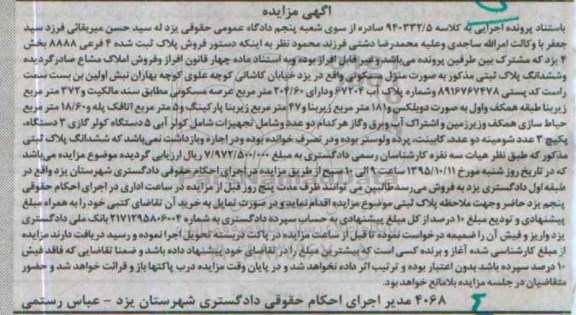 آگهی مزایده
باستناد پرونده اجرایی به کلاسه ۹۴۰۳۳۲/۵ صادره از سوی شعبه پنجم دادگاه عمومی حقوقی یزد له سید حسن میربقائی فرزد سید
جعفر با وکالت امرالله ساجدی وعلیه محمدرضا دشتی فرزند محمود نظر به اینکه دستور فروش پلاک ثبت شده ۴ فرعی ۸۸۸۸ بخش
۴ یزد که مشترک بین طرفین پرونده می‌باشد و غیر قابل افراز بوده وبه استناد ماده چهار قانون افراز وفروش املاک مشاع صادرگردیده
وششدانگ پلاک ثبتی مذکور به صورت منزل مسکونی واقع در یزد خیابان کاشانی کوچه علوی کوچه بهاران نبش اولین بن بست سمت
راست کد پستی ۸۹۱۶۷۶۷۴۷۸ وشماره پلاک آب ۶۷۲۰۴ ودارای ۲۰۴/۶۰ متر مربع عرصه مسکونی مطابق سند مالکیت و۳۷۲ متر مربع
زیربنا طبقه همکف واول به صورت دوبلکس و۱۸۱ متر مربع زیربنا و۴۷ متر مربع زیربنا پارکینگ و۵ متر مربع اتاقک پله و۱۸/۶۰ متر مربع
حیاط سازی همکف وزیرزمین و اشتراک آب وبرق وگاز هر کدام دو عدد وشامل تجهیزات شامل کولر آبی ۵ دستگاه کولر گازی ۳ دستگاه،
پکیج ۳ عدد شومینه دو عدد، کابینت، پرده ولوستر بوده ودر تصرف خوانده بوده ودر اجاره وبازداشت نمی‌باشد که ششدانگ پلاک ثبتی
مذکور که طبق نظر هیات سه نفره کارشناسان رسمی دادگستری به مبلغ ۷/۹۷۲/۵۰۰/۰۰۰ ریال ارزیابی گردیده موضوع مزایده می‌باشد
که در تاریخ روز شنبه مورخ ۱۳۹۵/۱۰/۱۱ ساعت ۹ الی ۱۰ صبح از طریق مزایده در اجرای احکام حقوقی دادگستری شهرستان یزد واقع در
طبقه اول دادگستری یزد به فروش می‌رسد طالبین می توانند ظرف مدت پنج روز قبل از مزایده در ساعت اداری در اجرای احکام حقوقی
پنجم یزد حاضر وجهت ملاحظه پلاک ثبتی موضوع مزایده اقدام نماید و در صورت تمایل به خرید آن تقاضای کتبی خود را به همراه مبلغ
پیشنهادی و تودیع مبلغ ۱۰ درصد از کل مبلغ پیشنهادی به حساب سپرده دادگستری به شماره ۲۱۷۱۲۹۵۸۰۶۰۰۴ بانک ملی دادگستری
یزد واریز و فیش آن را ضمیمه درخواست نموده تا قبل از ساعت مزایده در پاکت دربسته تحویل اجرا نموده و رسید دریافت دارند مزایده
از مبلغ کارشناسی شده آغاز و برنده کسی است که بیشترین مبلغ را در تقاضای خود پیشنهاد داده باشد و ضمنا تقاضایی که فاقد فیش
۱۰ درصد سپرده باشد بدون اعتبار بوده و ترتیب اثر داده نخواهد شد و در پایان وقت مزایده درب پاکتها باز و قرائت خواهد شد و حضور
متقاضیان در جلسه مزایده بلامانع خواهد بود.
۴۰۶۸ مدیر اجرای احکام حقوقی دادگستری شهرستان یزد - عباس رستمی